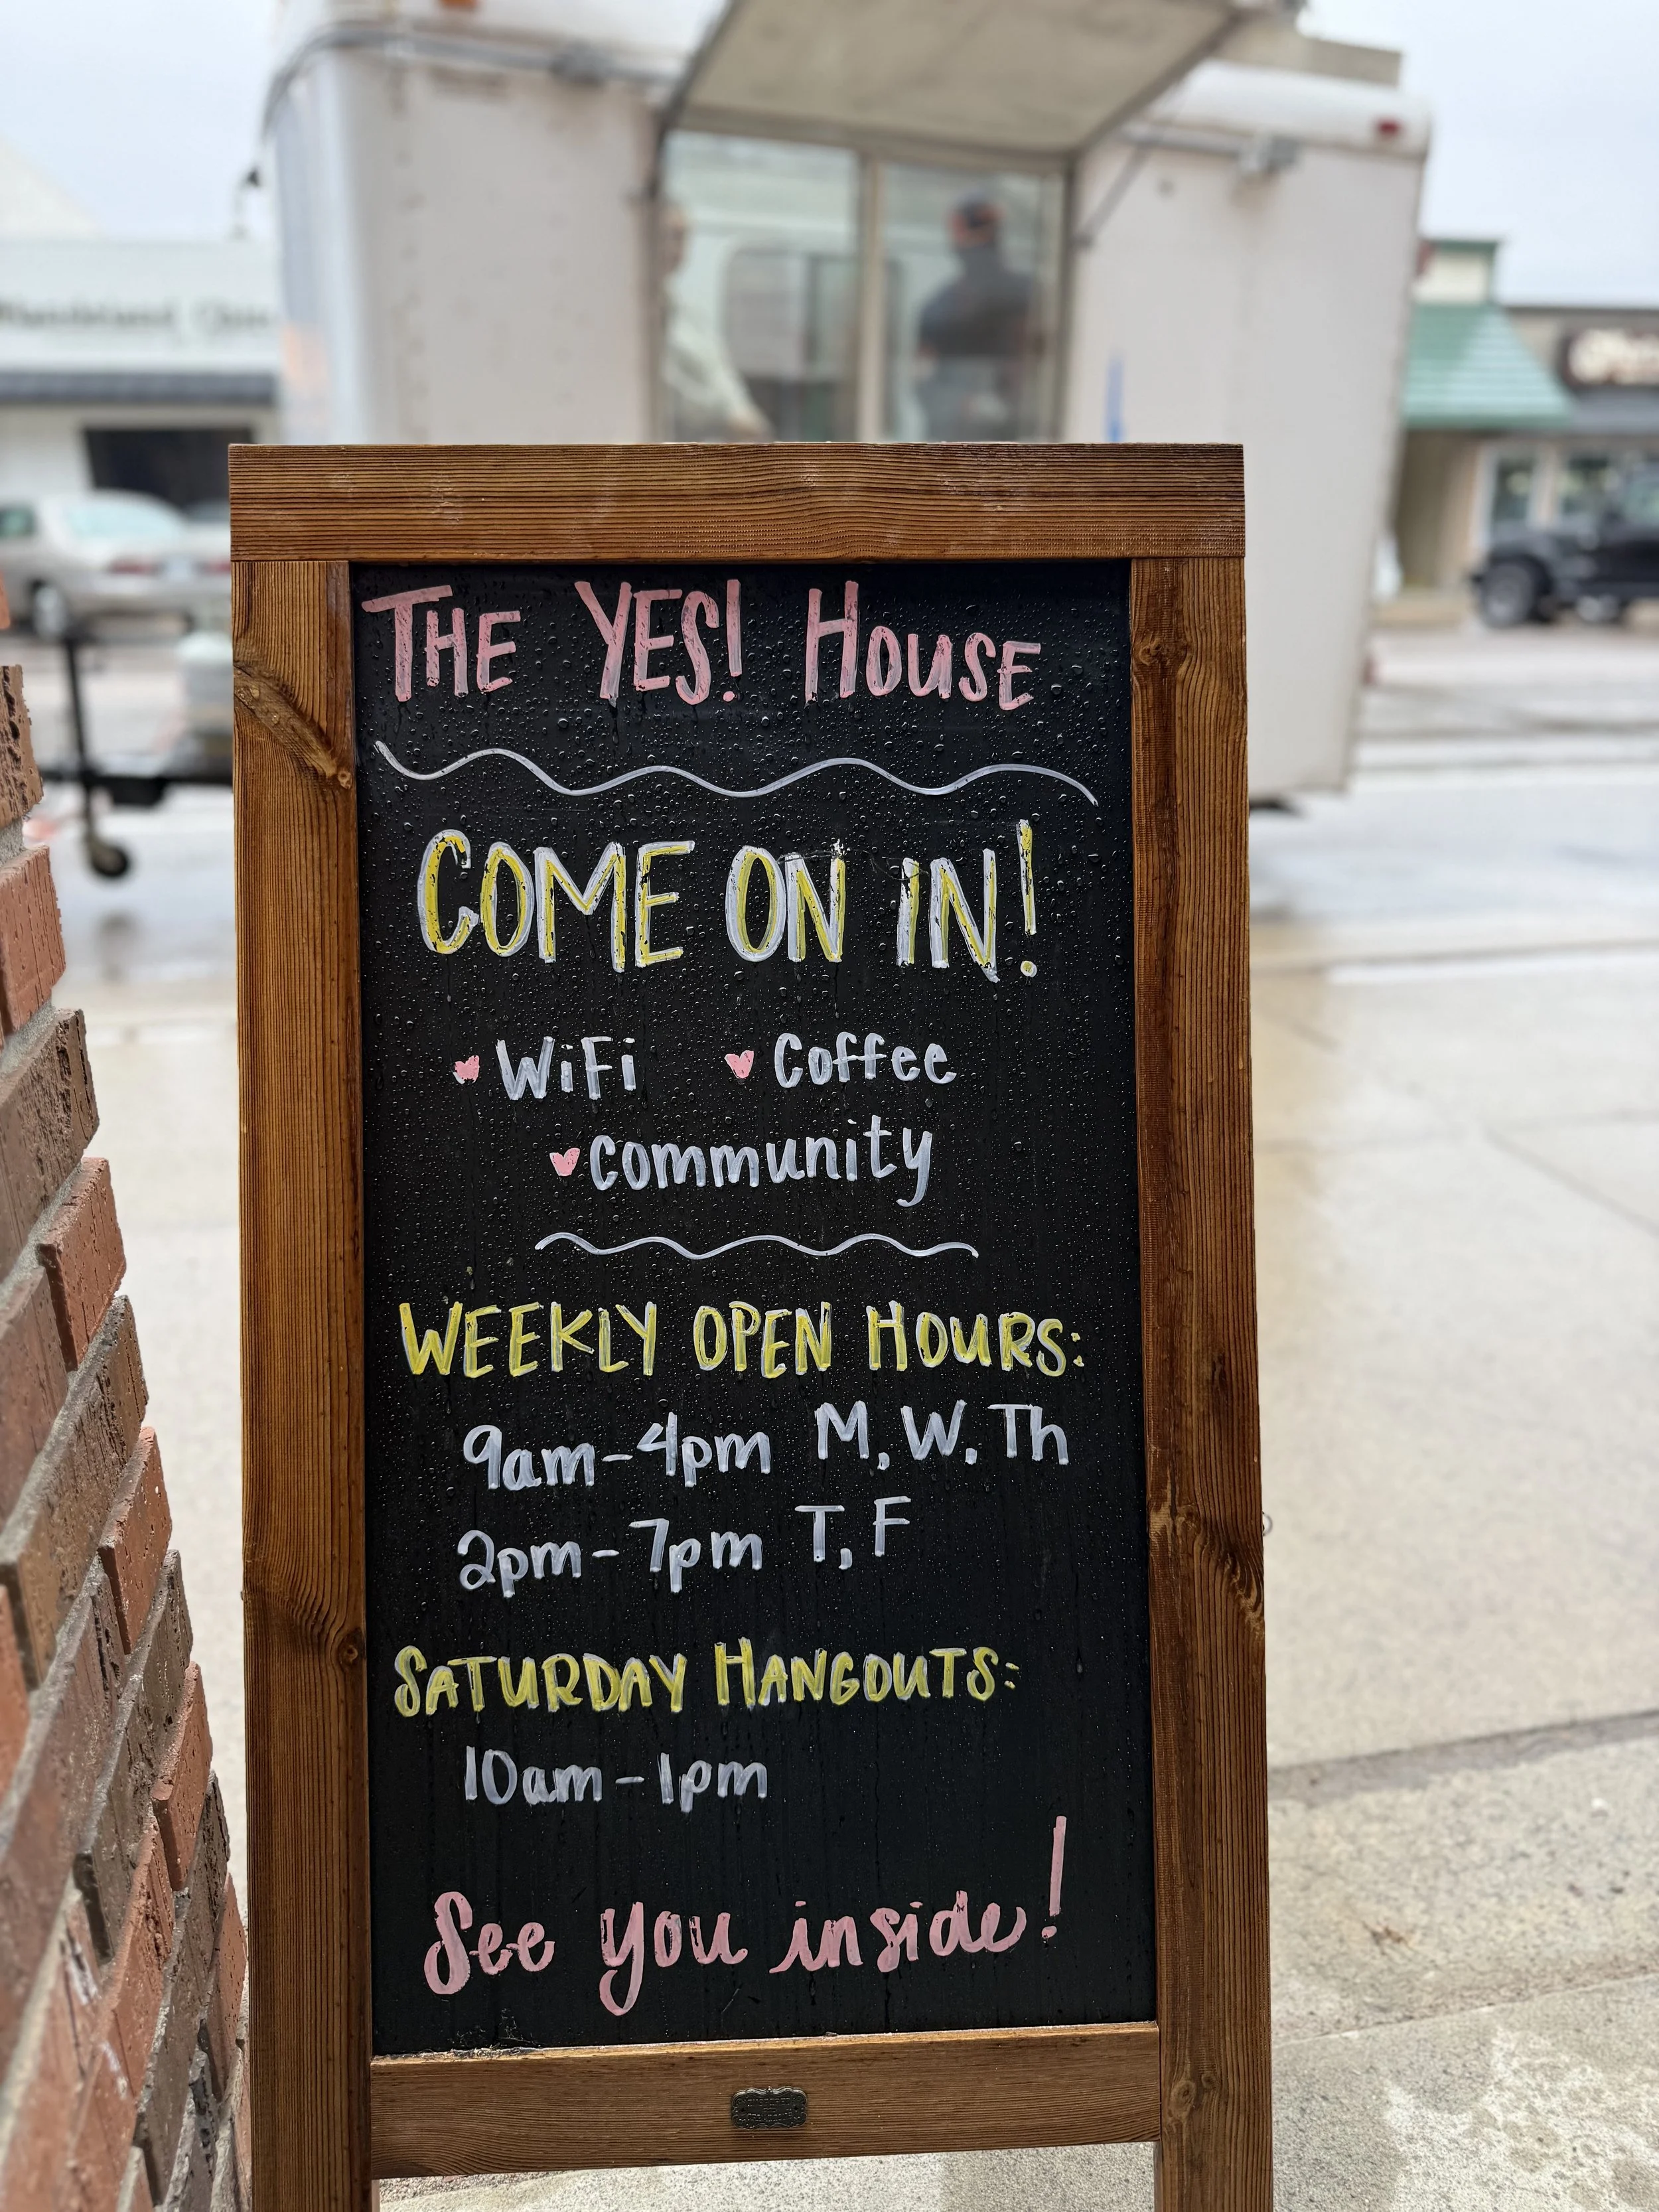 THE YES! HOUSE
COME ON IN!
WiFi Coffee
Community
WEEKLY OPEN HOURS:
9am-4pm M, W, Th
2pm-7pm T, F
SATURDAY HANGOUTS:
10am-1pm
See you inside!